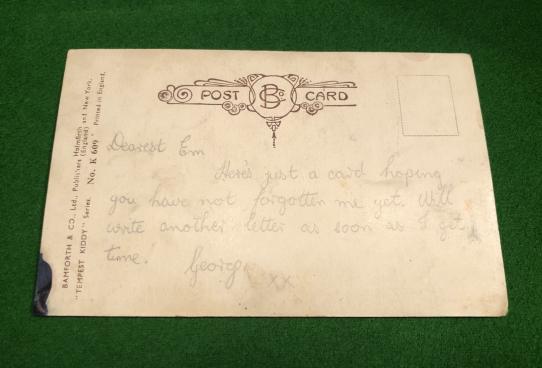 POST B Co CARD
BAMFORTH & CO., Ltd., Publishers Holmfirth (England) and New York.
"TEMPEST KIDDY" Series. No. K 609 Printed in England.
Dearest Em
Here's just a card hoping
you have not forgotten me yet. Will
write another letter as soon as I get
time. George
xx